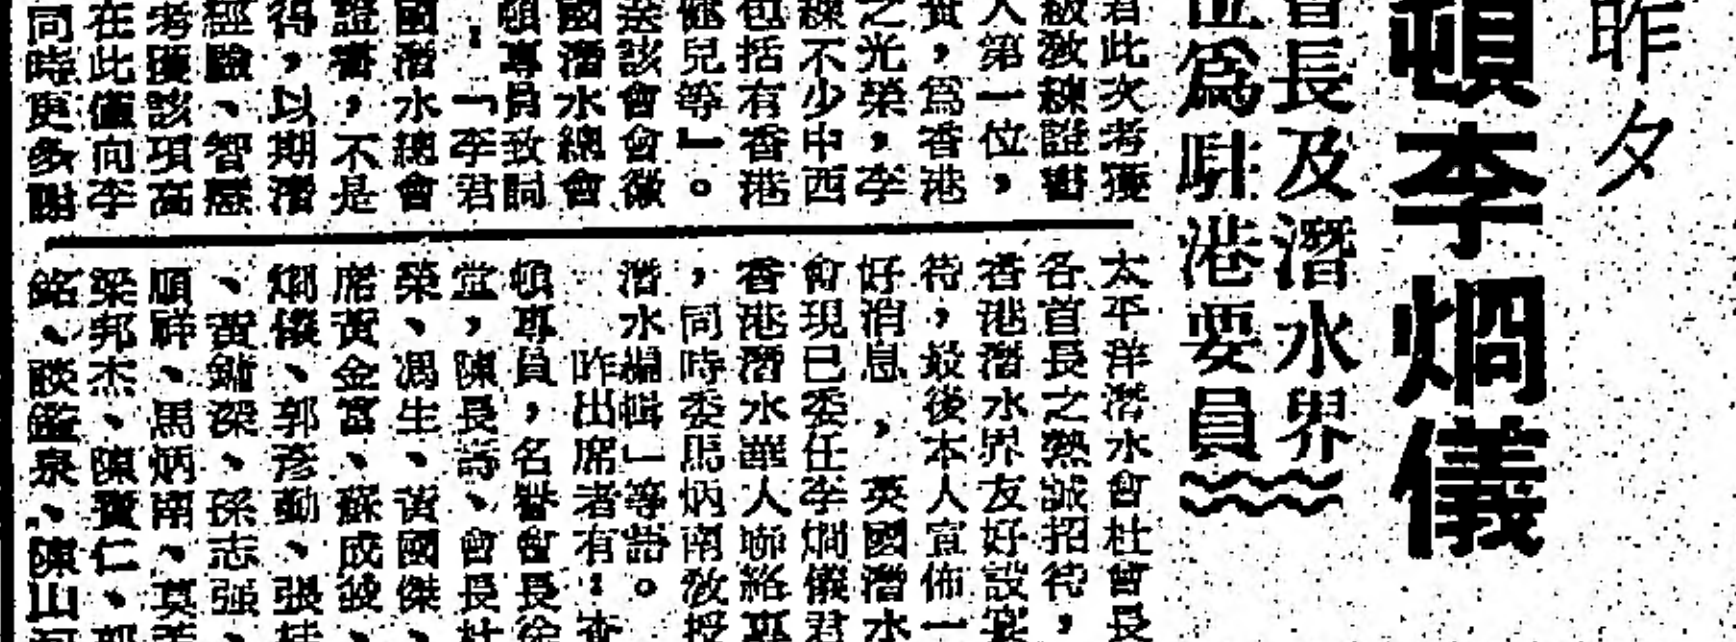 昨夕
頓李烱儀
會長及潛水界
並為駐港要員
君此次考獲
級教練證書
人第一位，
貴，為香港
之光榮，李
練不少中西
包括有香港
健兒等」。
送該會會徽
國潛水總會
頓專員致詞
：「李君
國潛水總會
證書，不是
得，以期潛
經驗、智慧
考獲該項高
在此僅向李
同時更多謝
太平洋潛水會杜會長
各首長之熱誠招待，
香港潛水界友好設宴
待，最後本人宣佈一
好消息，英國潛水
會現已委任李烱儀君
香港潛水華人聯絡專
，同時委馬炳南敎授
潛水編輯」等語。
昨出席者有：查
頓專員，名譽會長徐
堂，陳長壽、會長杜
榮、馮生、黃國傑、
席黃金富、蘇成波、
烱儀、郭彥勤、張
、黃鏞深、孫志强、
順祥、馬炳南、莫
梁邦杰、陳寶仁、郭
銘、談鑑泉、陳山河